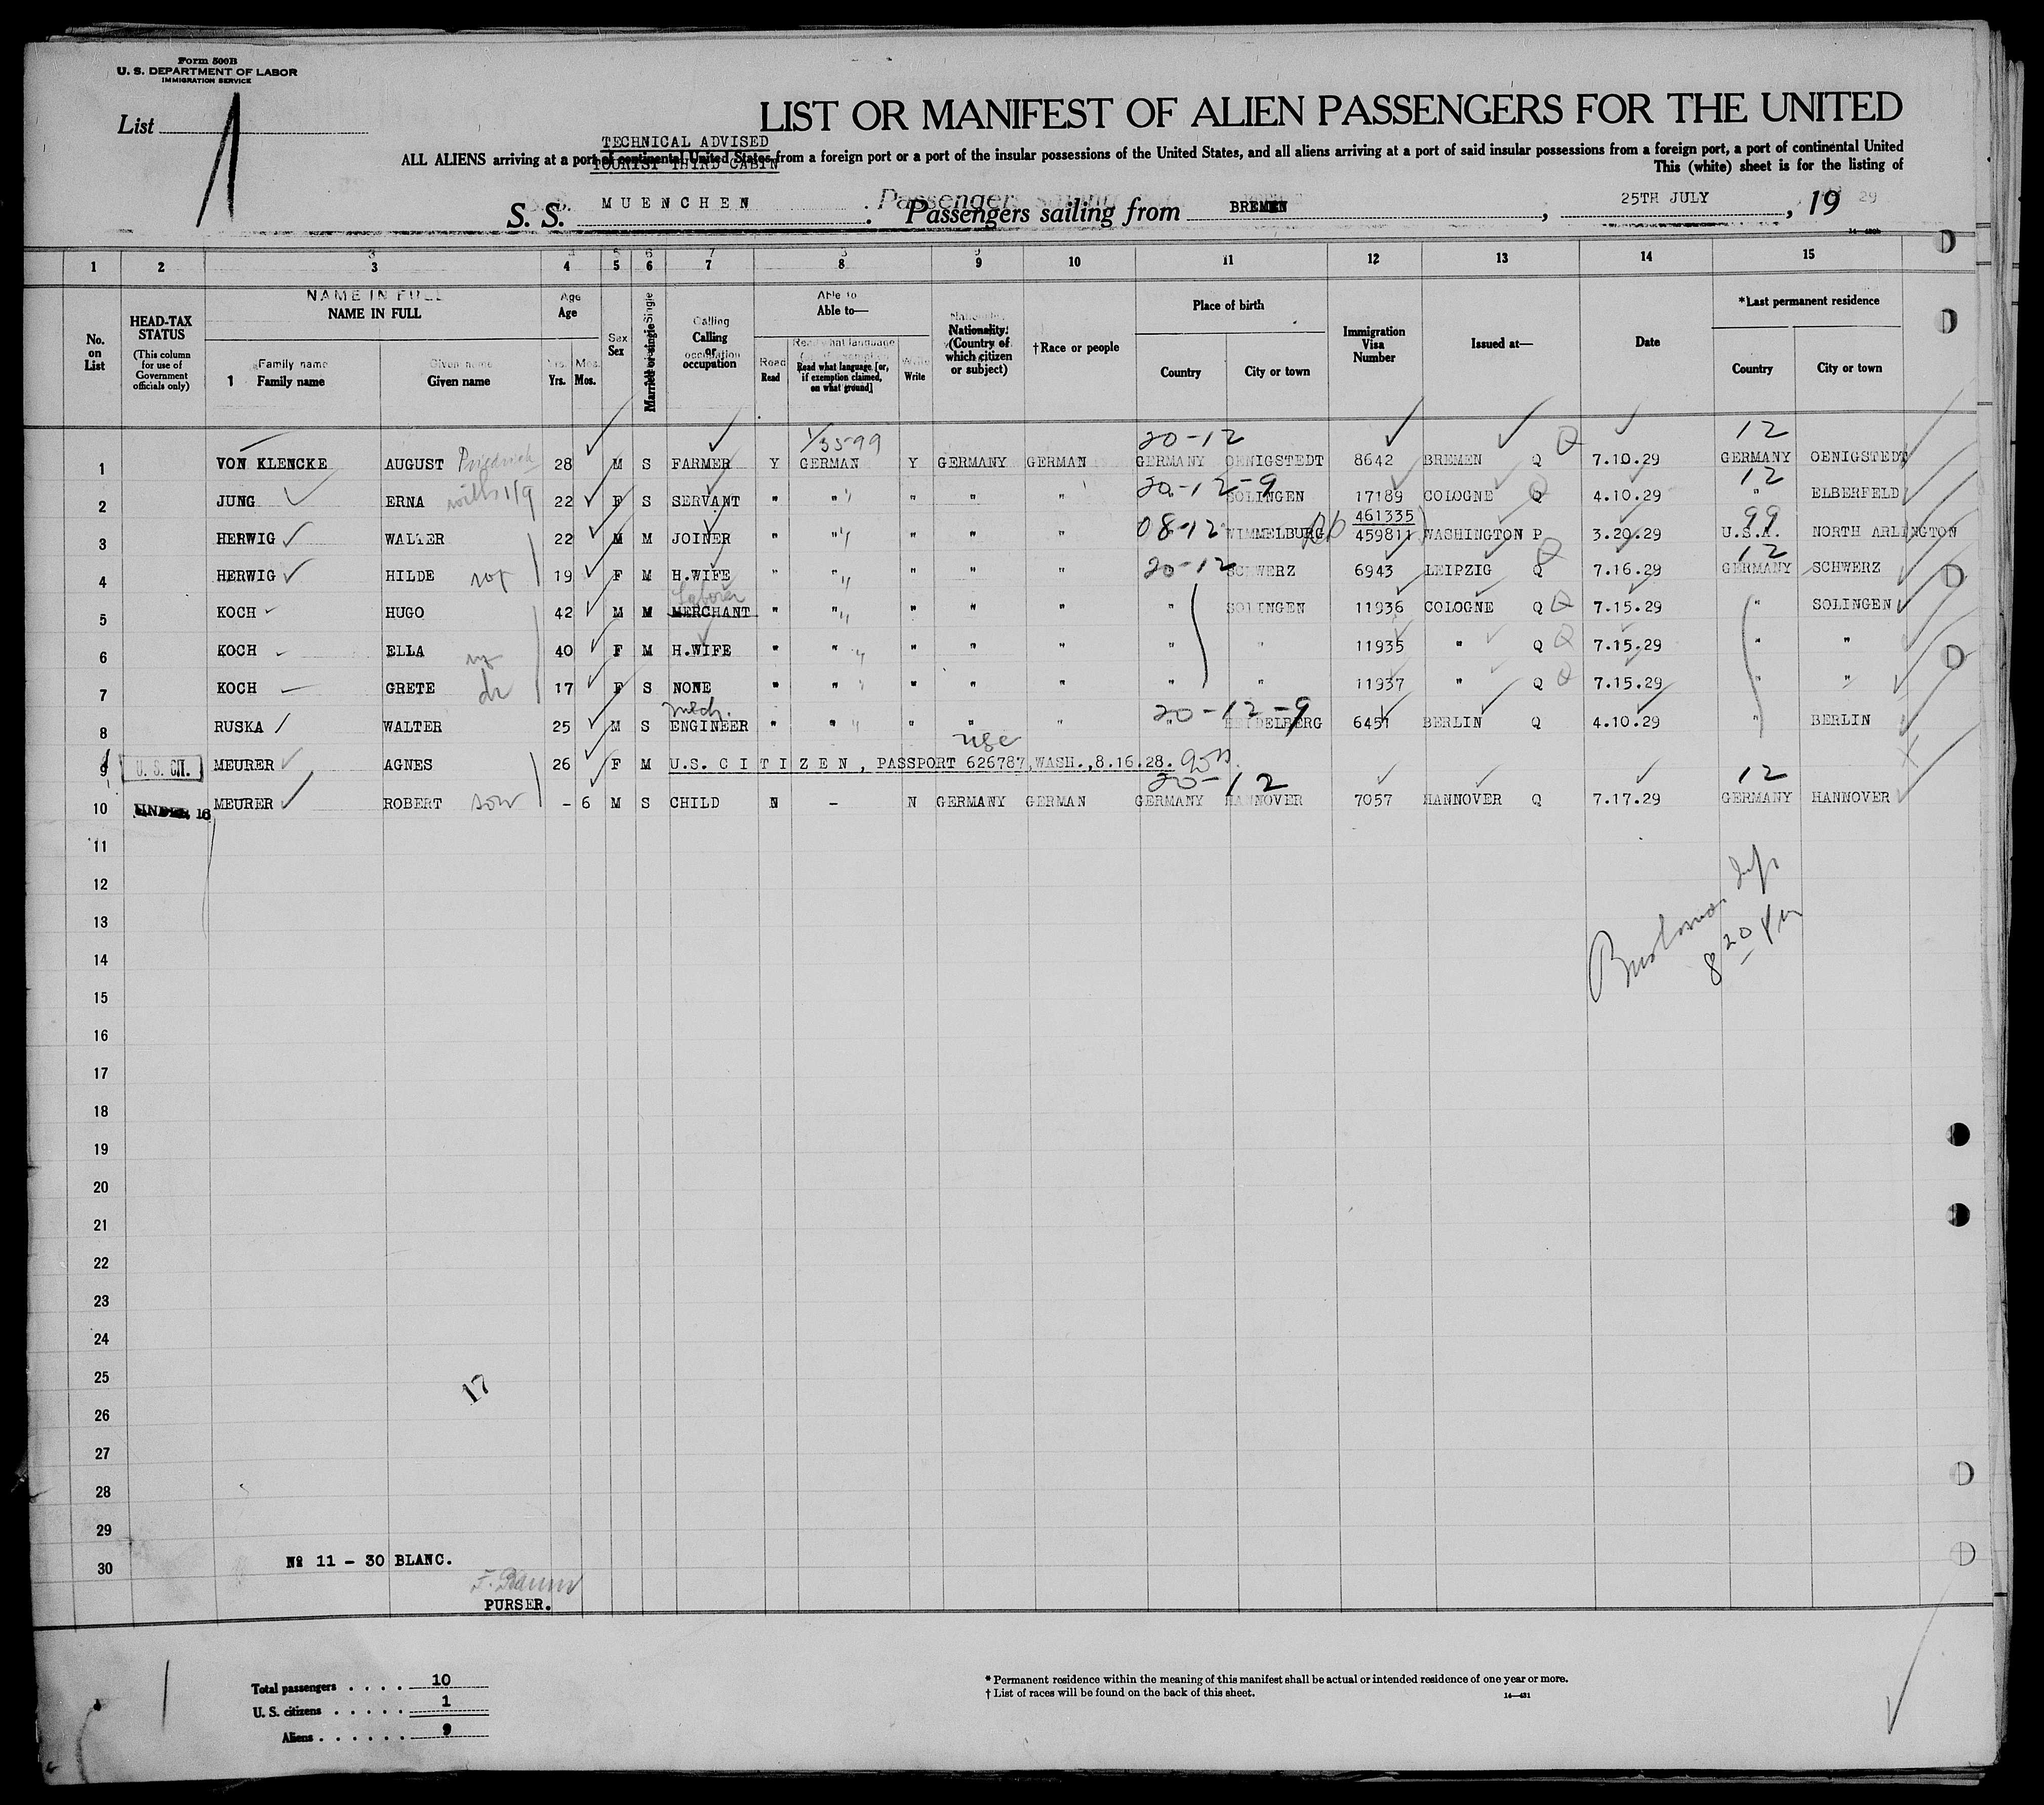 Form 500B
U. S. DEPARTMENT OF LABOR
IMMIGRATION SERVICE
List 1
LIST OR MANIFEST OF ALIEN PASSENGERS FOR THE UNITED
TECHNICAL ADVISED
ALL ALIENS arriving at a port of continental United States from a foreign port or a port of the insular possessions of the United States, and all aliens arriving at a port of said insular possessions from a foreign port, a port of continental United
TOURIST THIRD CABIN
This (white) sheet is for the listing of
S. S. MUENCHEN Passengers sailing from BREMEN, 25TH JULY, 19 29
1 2 3 4 5 6 7 8 9 10 11 12 13 14 15
No. on List
HEAD-TAX STATUS (This column for use of Government officials only)
NAME IN FULL
Family name Given name
Age Yrs. Mos.
Sex
Married or single
Calling or occupation
Able to—
Read Read what language [or, if exemption claimed, on what ground] Write
Nationality: (Country of which citizen or subject)
†Race or people
Place of birth
Country City or town
Immigration Visa Number
Issued at—
Date
*Last permanent residence
Country City or town
20-12 12
1 VON KLENCKE AUGUST Friedrich 28 M S FARMER Y GERMAN Y GERMANY GERMAN GERMANY OENIGSTEDT 8642 BREMEN Q 7.10.29 GERMANY OENIGSTEDT
20-12-9 12
2 JUNG ERNA 22 F S SERVANT " " " " " SOLINGEN 17189 COLOGNE Q 4.10.29 " ELBERFELD
461335
3 HERWIG WALTER 22 M M JOINER " " " " " 08-12 WIMMELBURG 459811 WASHINGTON P 3.20.29 99 U.S.A. NORTH ARLINGTON
20-12 12
4 HERWIG HILDE 19 F M H.WIFE " " " " " SCHWERZ 6943 LEIPZIG Q 7.16.29 GERMANY SCHWERZ
Laborer
5 KOCH HUGO 42 M M MERCHANT " " " " " " SOLINGEN 11936 COLOGNE Q 7.15.29 " SOLINGEN
6 KOCH ELLA 40 F M H.WIFE " " " " " " " 11935 " Q 7.15.29 " "
7 KOCH GRETE 17 F S NONE " " " " " " " 11937 " Q 7.15.29 " "
mech. 20-12-9
8 RUSKA WALTER 25 M S ENGINEER " " " " " " HEIDELBERG 6451 BERLIN Q 4.10.29 " BERLIN
usc
9 U. S. CIT. MEURER AGNES 26 F M U.S. CITIZEN, PASSPORT 626787, WASH., 8.16.28.
20-12 12
10 UNDER 16 MEURER ROBERT son - 6 M S CHILD N - N GERMANY GERMAN GERMANY HANNOVER 7057 HANNOVER Q 7.17.29 GERMANY HANNOVER
11
12
13
14
15
16
17
18
19
20
21
22
23
24
25
17
26
27
28
29
30
№ 11 - 30 BLANC.
PURSER.
Total passengers . . . . 10
U. S. citizens . . . . . 1
Aliens . . . . . . 9
* Permanent residence within the meaning of this manifest shall be actual or intended residence of one year or more.
† List of races will be found on the back of this sheet. 14—431